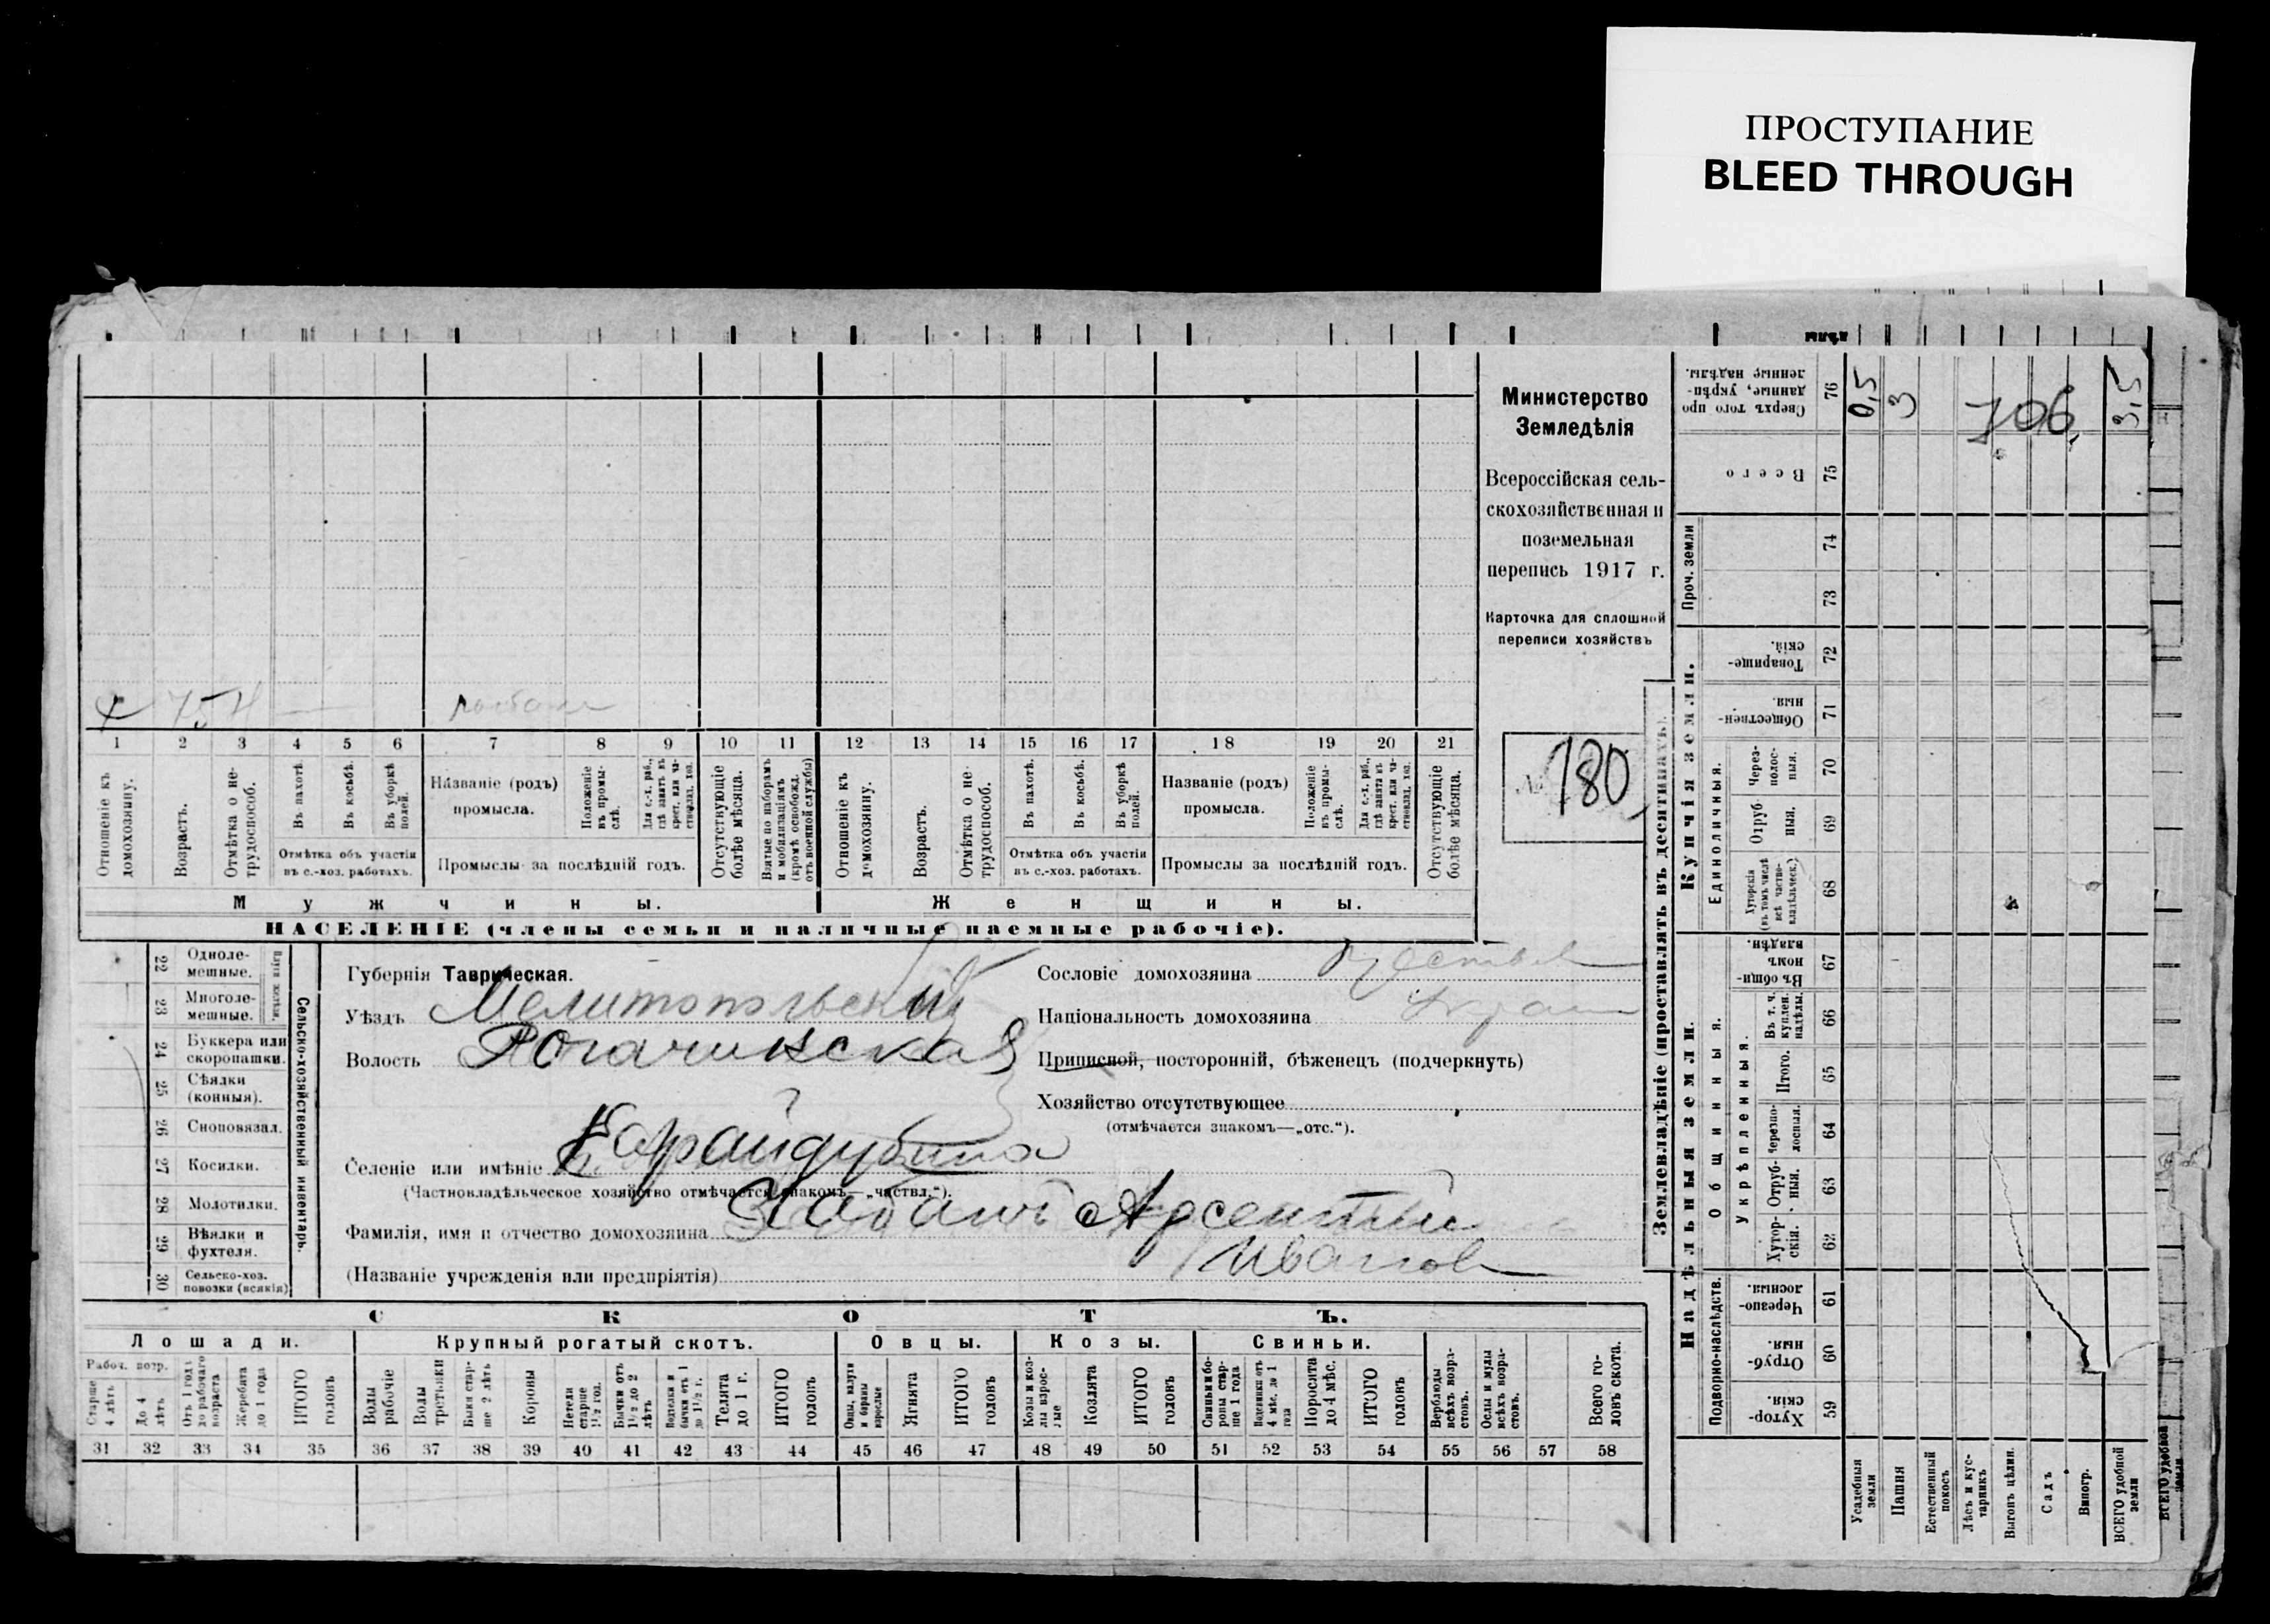 ПРОСТУПАНИЕ
BLEED THROUGH
Министерство
Земледѣлія
Всероссійская сель-
скохозяйственная и
поземельная
перепись 1917 г.
Карточка для сплошной
переписи хозяйствъ
№ 180
Х 75 Н
1 2 3 4 5 6 7 8 9 10 11 12 13 14 15 16 17 18 19 20 21
Отношеніе къ домохозяину.
Возрастъ.
Отмѣтка о не-трудоспособ.
Въ пахотѣ.
Въ косьбѣ.
Въ уборкѣ полей.
Отмѣтка объ участіи
въ с.-хоз. работахъ.
Названіе (родъ)
промысла.
Положеніе въ промы-слѣ.
Для с.-х. раб., гдѣ занятъ въ крест. или ча-стновлад. хоз.
Промыслы за послѣдній годъ.
Отсутствующіе болѣе мѣсяца.
Взятые по наборамъ и мобилизаціямъ (кромѣ освобожд. отъ военной службы)
Отношеніе къ домохозяину.
Возрастъ.
Отмѣтка о не-трудоспособ.
Въ пахотѣ.
Въ косьбѣ.
Въ уборкѣ полей.
Отмѣтка объ участіи
въ с.-хоз. работахъ.
Названіе (родъ)
промысла.
Положеніе въ промы-слѣ.
Для с.-х. раб., гдѣ занята въ крест. или ча-стновлад. хоз.
Промыслы за послѣдній годъ.
Отсутствующіе болѣе мѣсяца.
Мужчины.
Женщины.
НАСЕЛЕНІЕ (члены семьи и наличные наемные рабочіе).
Сельско-хозяйственный инвентарь.
22 Одноле-мешные.
23 Многоле-мешные.
24 Буккера или скоропашки.
25 Сѣялки (конныя).
26 Сноповязал.
27 Косилки.
28 Молотилки.
29 Вѣялки и фухтеля.
30 Сельско-хоз. повозки (всякія)
Губернія Таврическая.
Уѣздъ Мелитопольский
Волость Рогачикская
Селеніе или имѣніе Карайдубина
(Частновладѣльческое хозяйство отмѣчается знакомъ—„частвл.“).
Фамилія, имя и отчество домохозяина Хабаит Арсентий
Иванов
(Названіе учрежденія или предпріятія)
Сословіе домохозяина
Національность домохозяина Украин
Приписной, посторонній, бѣженецъ (подчеркнуть)
Хозяйство отсутствующее
(отмѣчается знакомъ—„отс.“).
СКОТЪ.
Лошади.
Крупный рогатый скотъ.
Овцы.
Козы.
Свиньи.
Рабоч. возр.
Старше 4 лѣтъ
До 4 лѣтъ
Отъ 1 года до рабочаго возраста
Жеребята до 1 года
ИТОГО головъ
Волы рабочіе
Волы третьяки
Быки стар-ше 2 лѣтъ
Коровы
Нетели старше 1½ год.
Бычки отъ 1½ до 2 лѣтъ
Подтелки и бычки отъ 1 до 1½ г.
Телята до 1 г.
ИТОГО головъ
Овцы, валухи и бараны взрослые
Ягнята
ИТОГО головъ
Козы и коз-лы взрос-лые
Козлята
ИТОГО головъ
Свиньи и бо-ровы стар-ше 1 года
Подсвинки отъ 4 мѣс. до 1 года
Поросята до 4 мѣс.
ИТОГО головъ
Верблюды всѣхъ возра-стовъ.
Ослы и мулы всѣхъ возра-стовъ.
Всего го-ловъ скота.
31 32 33 34 35 36 37 38 39 40 41 42 43 44 45 46 47 48 49 50 51 52 53 54 55 56 57 58
Землевладѣніе (проставлять въ десятинахъ).
Надѣльныя земли.
Купчія земли.
Проч. земли
Подворно-наслѣдств.
Общинныя.
Укрѣпленныя.
Единоличныя.
76 Сверхъ того про данные, укрѣп-ленные надѣлы.
75 Всего
74
73
72 Товарище-скій.
71 Обществен-ныя.
70 Через-полос-ныя.
69 Отруб-ныя.
68 Хуторскія (въ томъ числѣ всѣ частно-владѣльческ.)
67 Въ общин-номъ владѣн.
66 Въ т. ч. куплен. надѣлы.
65 Итого.
64 Черезпо-лосныя.
63 Отруб-ныя.
62 Хутор-скія.
61 Черезпо-лосныя
60 Отруб-ныя.
59 Хутор-скія.
Усадебныя земли
Пашня
Естественный покосъ
Лѣсъ и кус-тарникъ
Выгонъ цѣлин.
Садъ
Виногр.
ВСЕГО удобной земли
ВСЕГО удобной земли
0,5
3
706
3,5